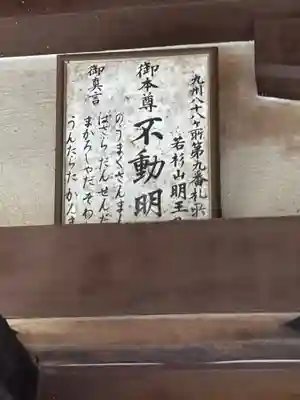 九州八十八ヶ所第九番札所
若杉山明王
御本尊
不動明
御真言
のうまくさんまん
ばざらだんせんだ
まかろしゃだそわ
うんたらたかん